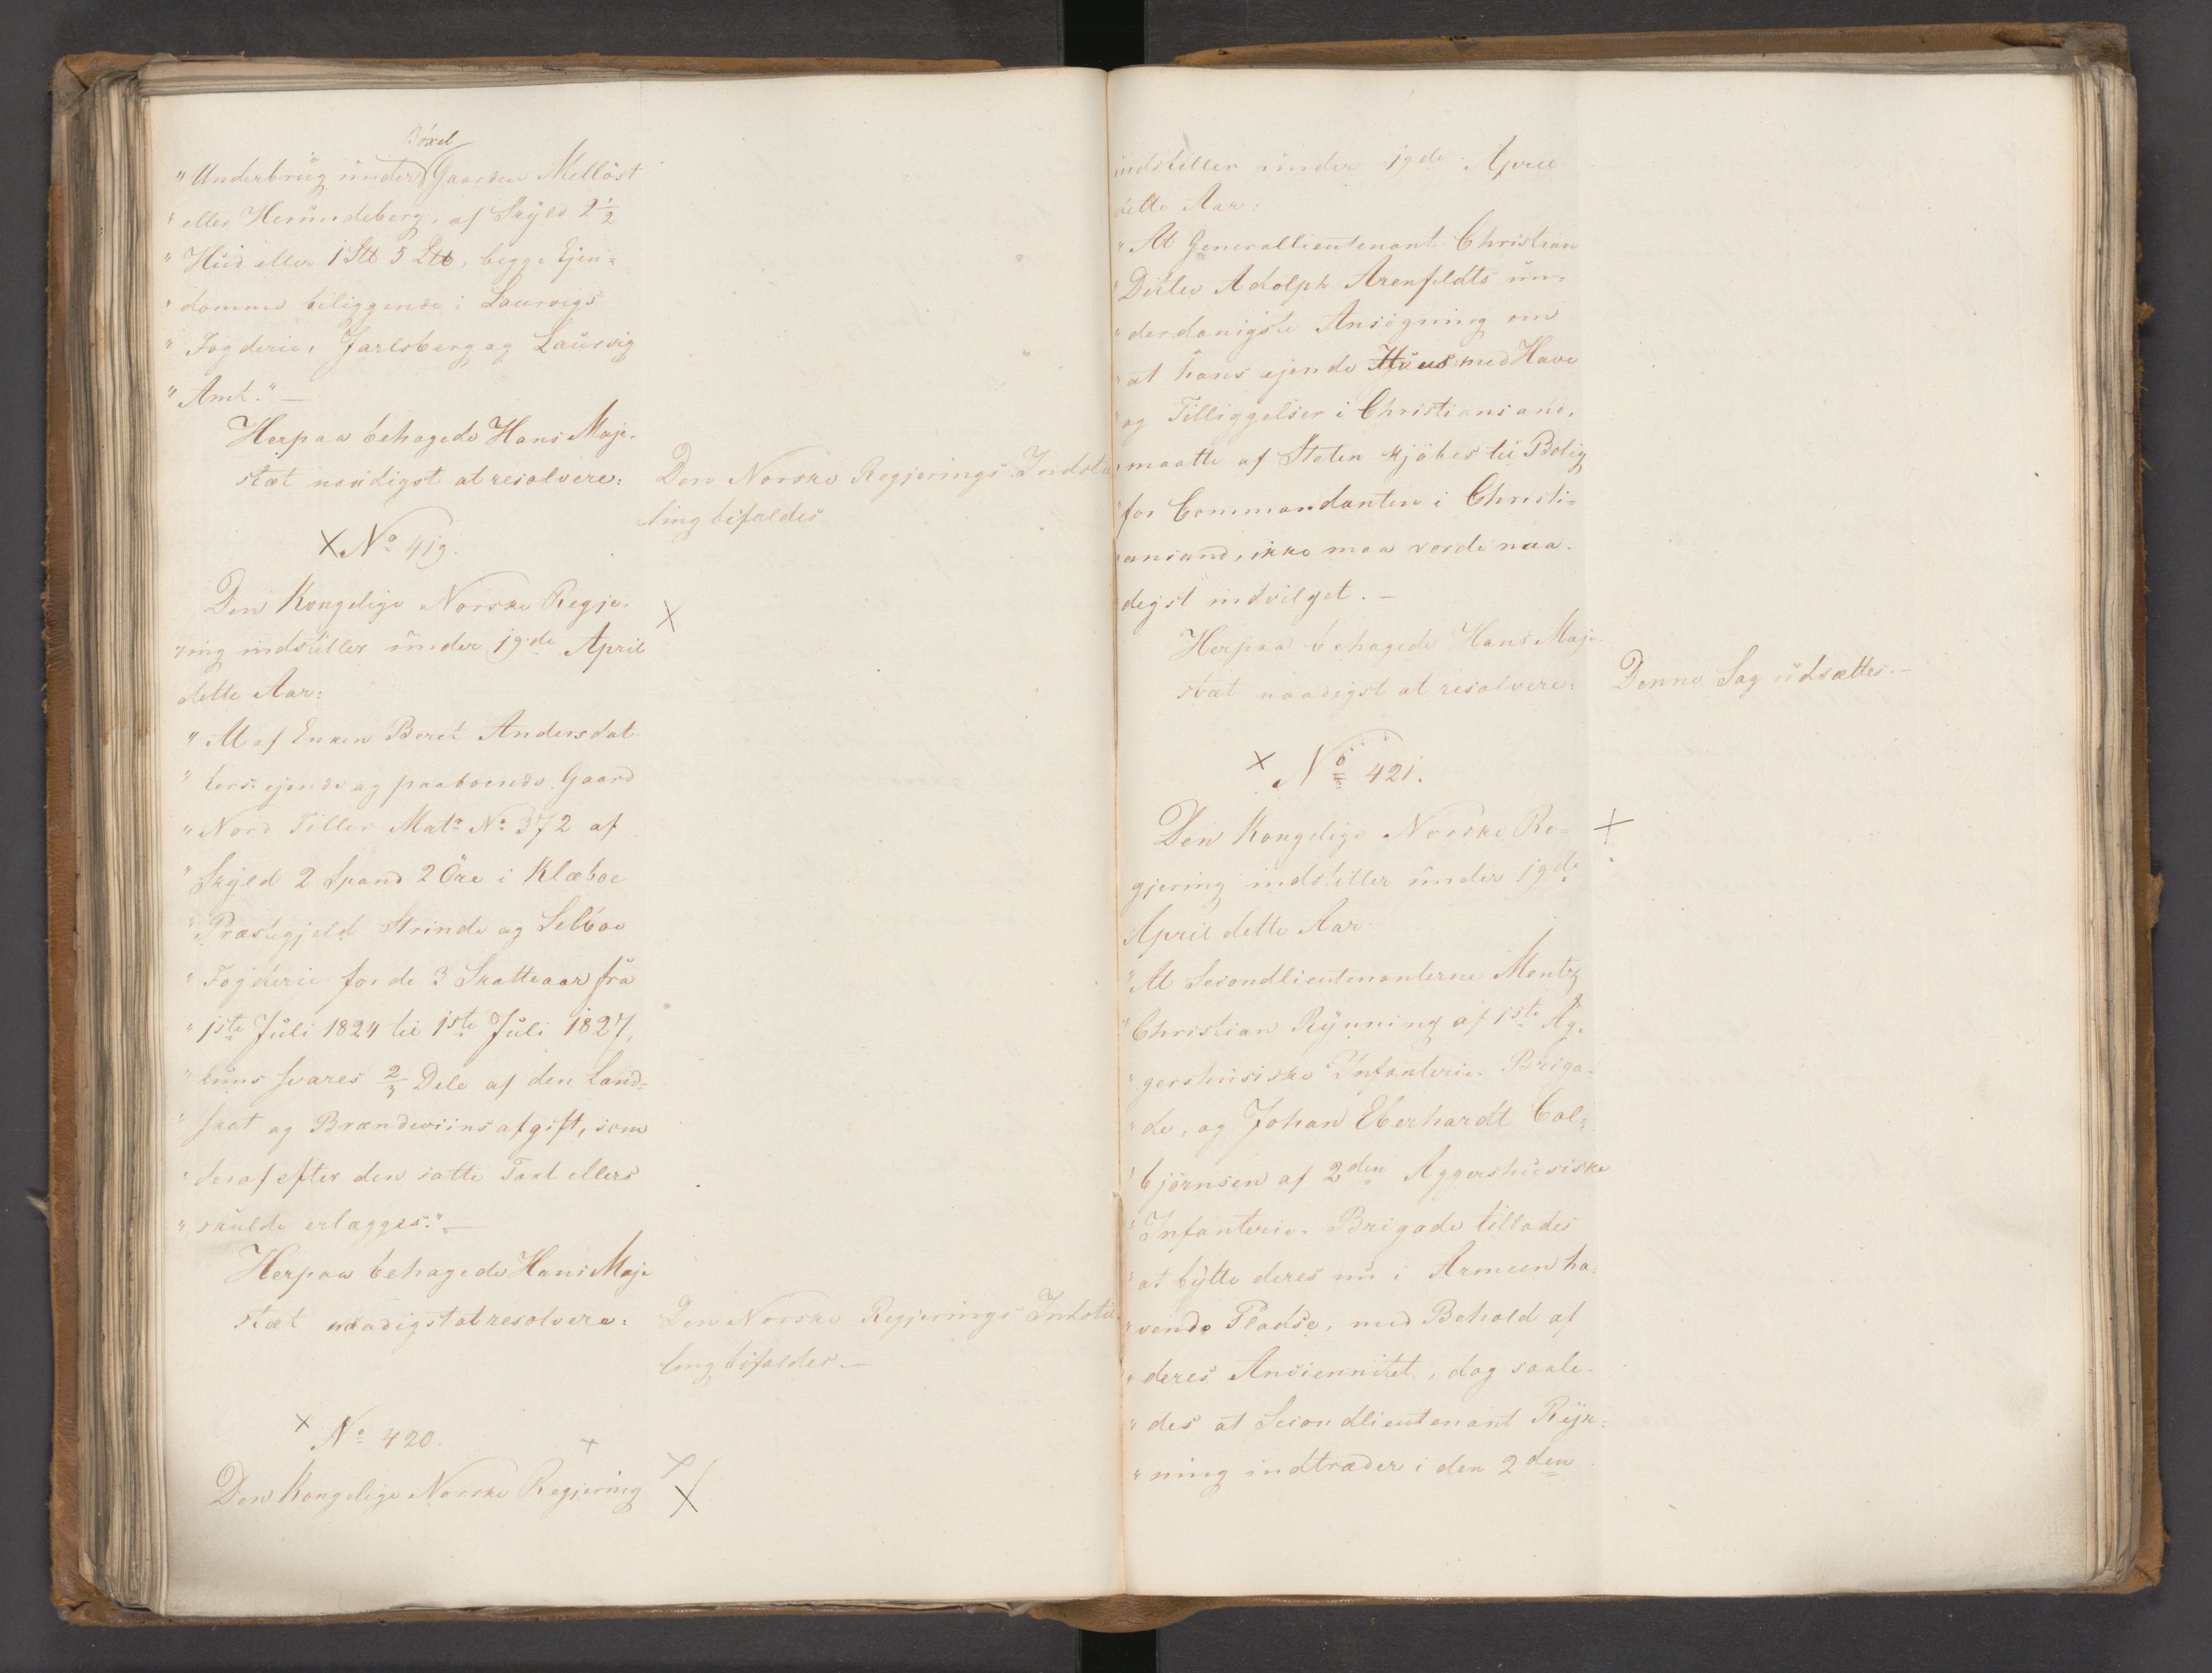 Böxel
"Underbrug under Gaarden Melløst
"eller Herumdeberg, af Skyld 2½
"Hud eller 1 Sttb 5 Ltb, begge Ejen=
"domme beliggende i Laurvigs
"Fogderie, Jarlsberg og Laurvig
"Amt." —
Herpaa behagede Hans Maje-
stæt naadigst at resolvere:
Den Norske Regjerings Indstil
ling bifaldes
× No 419.
Den Kongelige Norske Regje-
ring indstiller under 19de April
dette Aar:
"At af Enken Beret Andersdat-
"ters ejende og paaboende Gaard
"Nord Tiller Matr No 372 af
"Skyld 2 Spand 2 Öre i Klæboe
"Præstegjeld Strinde og Selboe
"Fogderie for de 3 Skatteaar fra
"1ste Juli 1824 til 1ste Juli 1827,
"kuns svares 2/3 Dele af den Land=
"skat og Brændeviinsafgift, som
"deraf efter den satte Taxt ellers
"skulde erlægges." —
Herpaa behagede Hans Maje
stæt naadigst at resolvere:
Den Norske Regjerings Indstil-
ling bifaldes. —
× No 420.
Den Kongelige Norske Regjering
indstiller under 19de April
dette Aar:
"At Generallieutenant Christian
"Ditlev Adolph Arenfeldts un=
"derdanigste Ansøgning om
"at hans ejende Huus med Have
"og Tilliggelser i Christiansand,
"maatte af Staten kjöbes til Bolig
"for Commandanten i Christi=
"ansand, ikke maa vorde naa-
digst indvilget. —
Herpaa behagede Hans Maje
stæt naadigst at resolvere:
Denne Sag udsættes. —
× No 421.
Den Kongelige Norske Re=
gjering indstiller under 19de
April dette Aar
"At Secondlieutenanterne Mentz
"Christian Rynning af 1ste Ag-
"gershusiske Infanterie-Briga-
"de, og Johan Eberhardt Col=
"bjørnsen af 2den Aggershusiske
"Infanterie-Brigade tillades
"at bytte deres nu i Armeen ha-
"vende Pladse, med Behold af
"deres Anciennitet, dog saale-
"des at Secondlieutenant Ryn=
"ning indtræder i den 2den